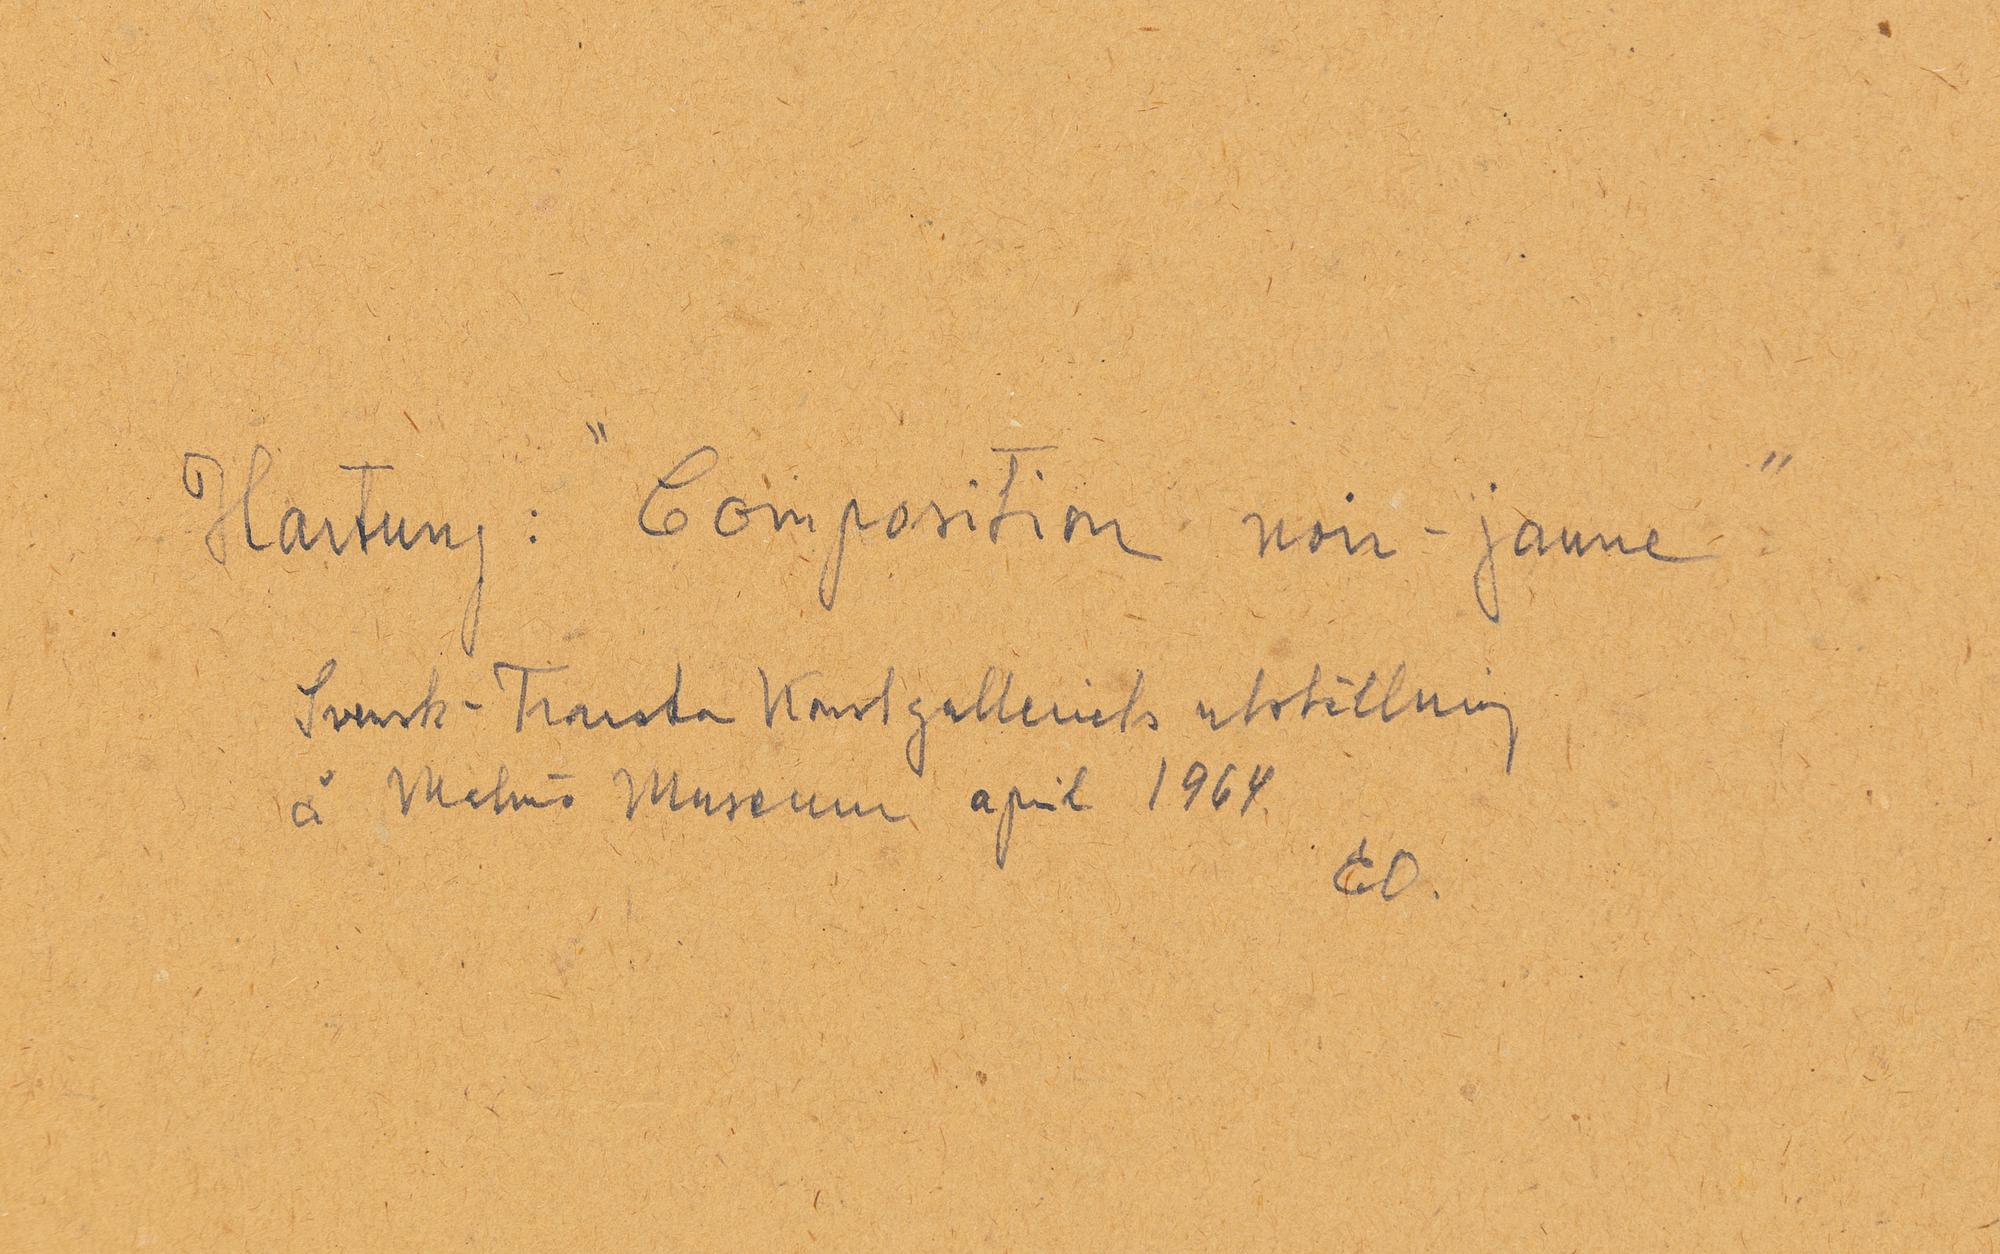 Hartung: "Composition noir-jaune"
Svensk-Franska Konstgalleriets utställning
å Malmö Museum april 1964
EO.